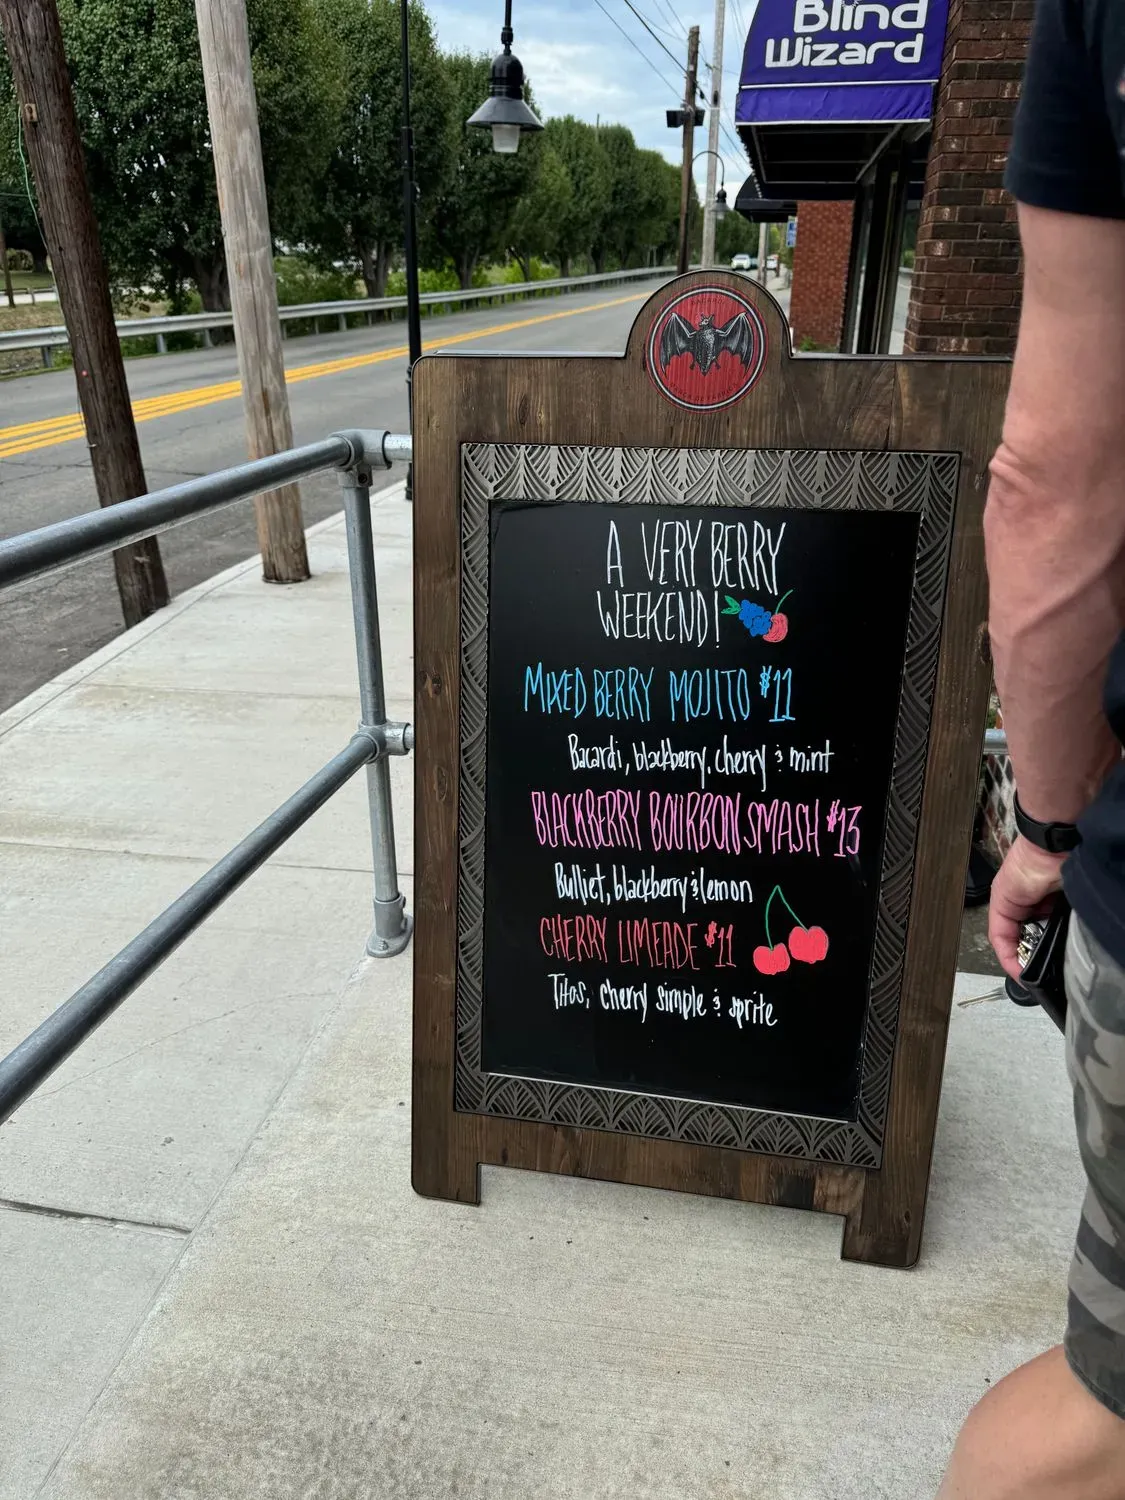 Blind
Wizard
A VERY BERRY
WEEKEND!
MIXED BERRY MOJITO $11
Bacardi, blackberry, cherry & mint
BLACKBERRY BOURBON SMASH $13
Bulliet, blackberry & lemon
CHERRY LIMEADE $11
Titos, cherry simple & sprite